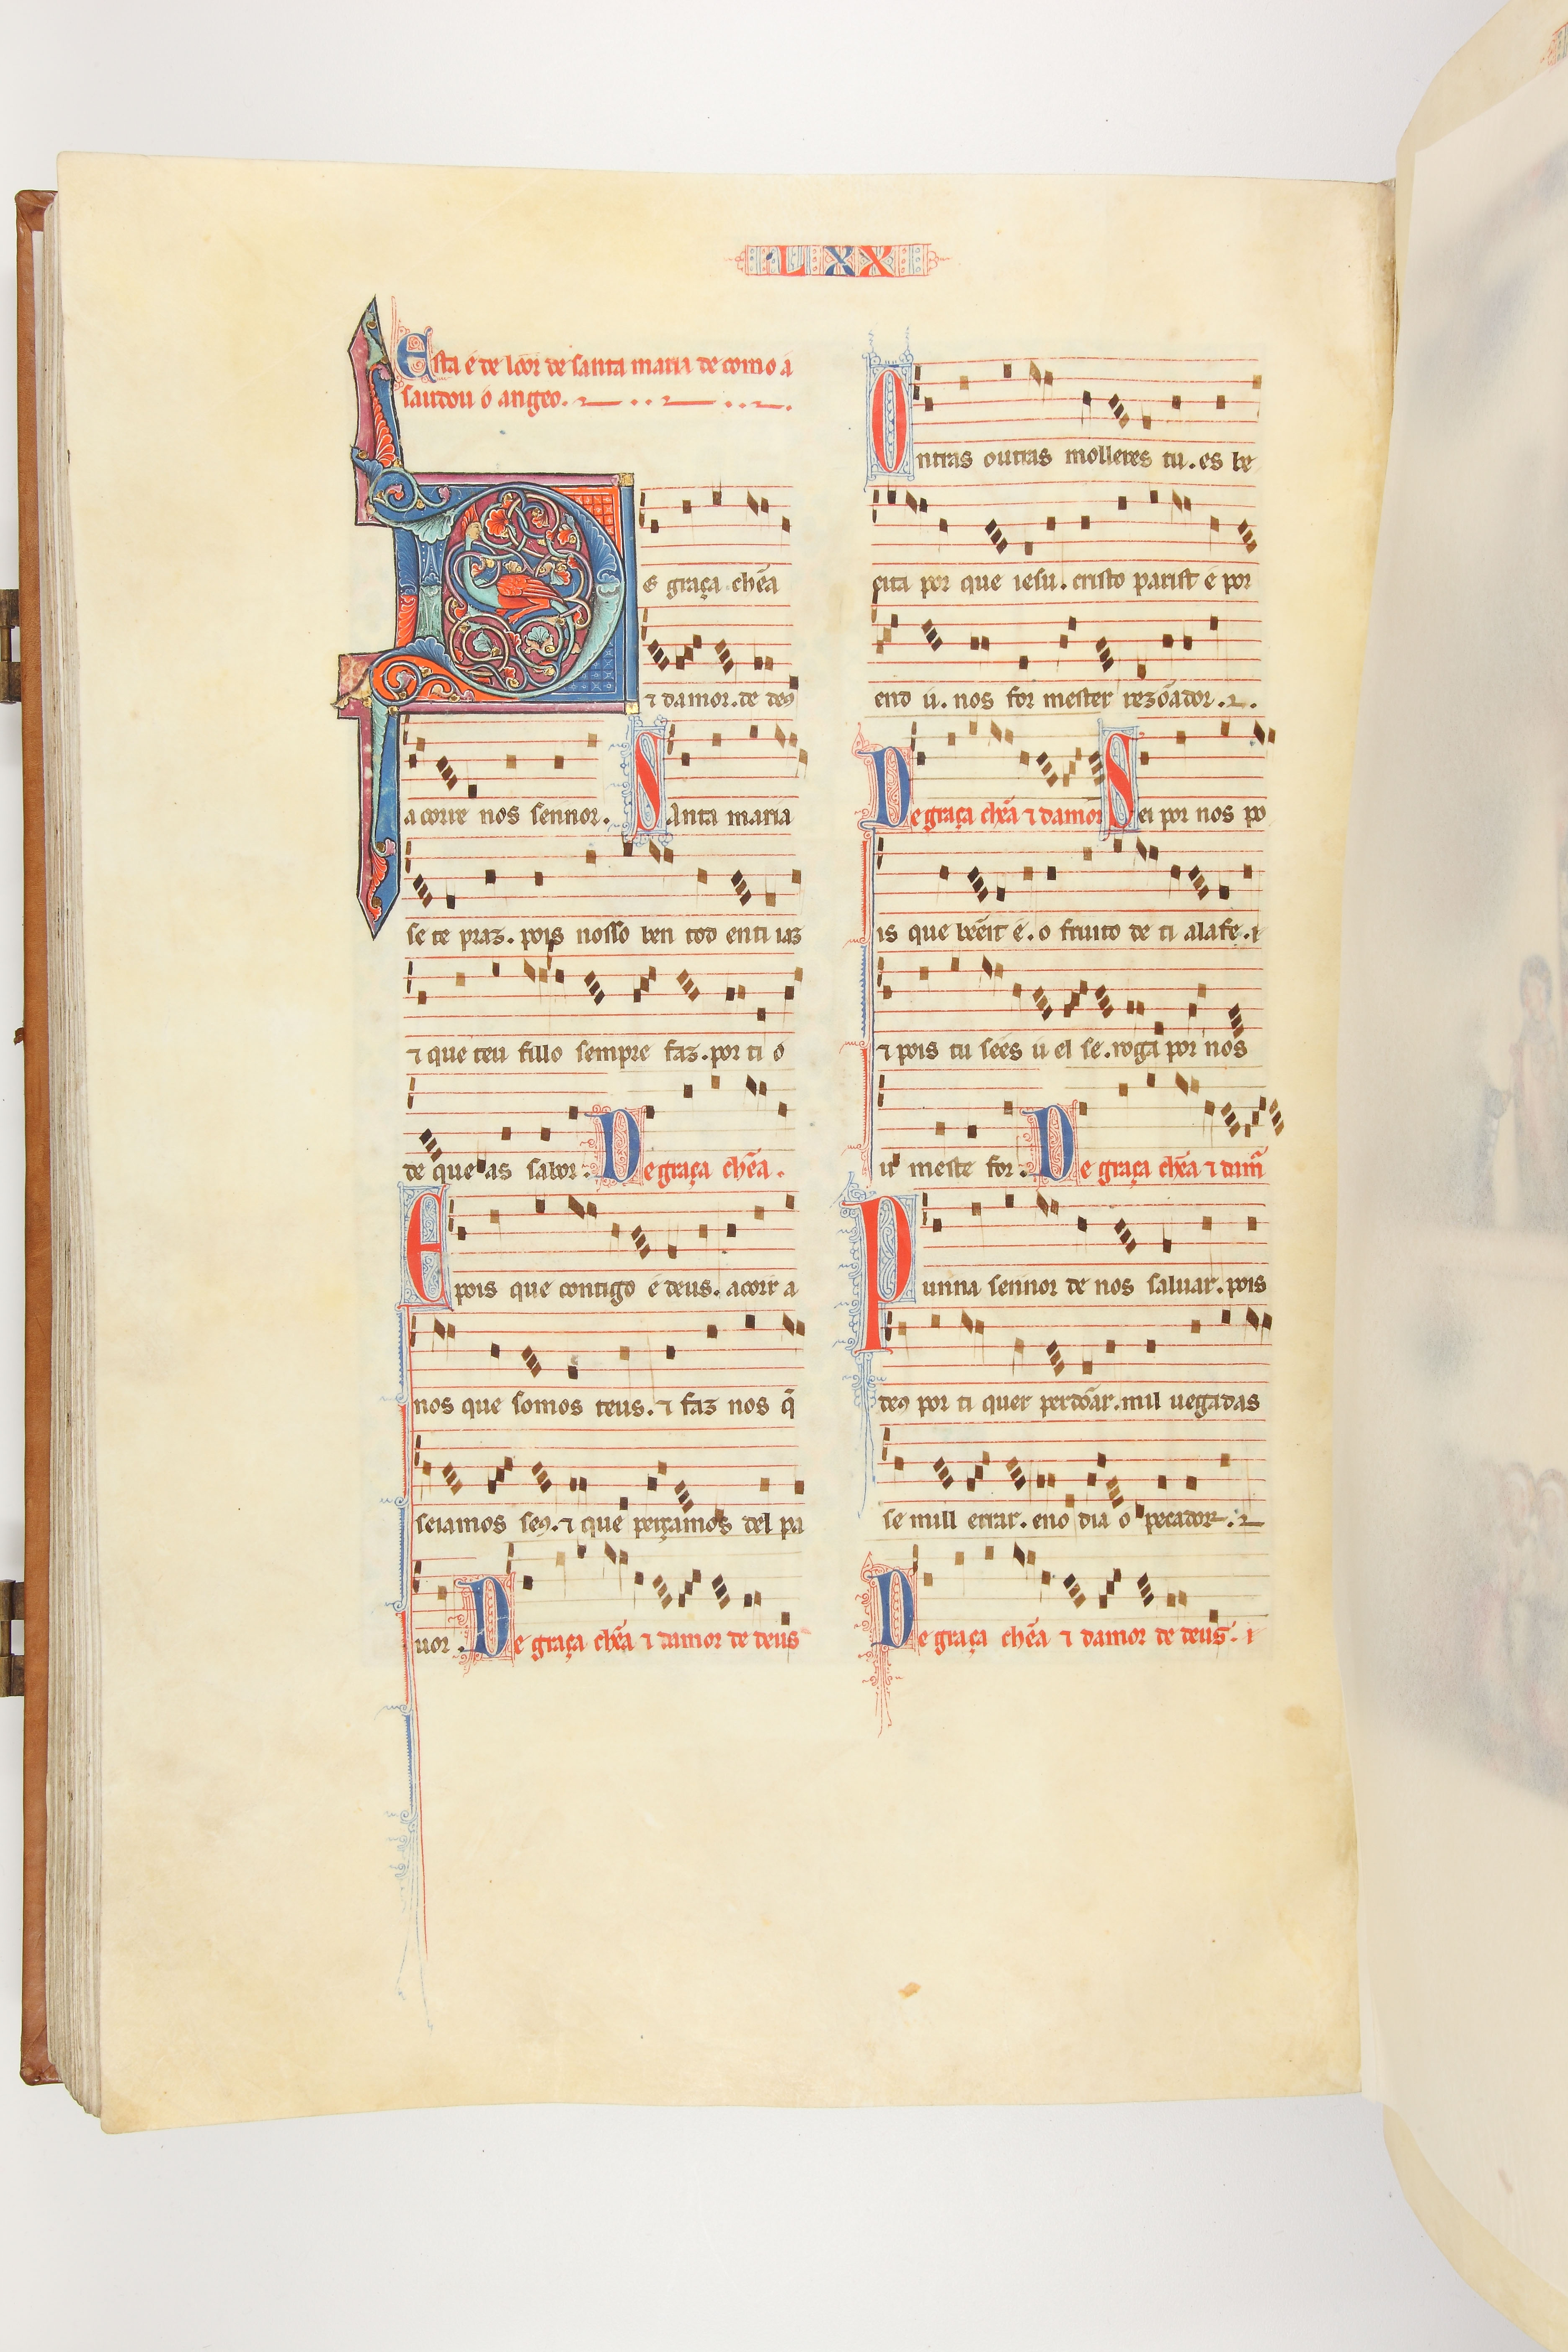 LXX
Esta é de loor de santa maria de como á
saudou o angeo.
De graça chēa
⁊ damor. de deꝰ
acorre nos sennor. Santa maria
se te praz. pois nosso ben tod enti iaz
⁊ que teu fillo sempre faz. por ti o
de que as sabor. De graça chēa.
E pois que contigo é deus. acorr a
nos que somos teus. ⁊ faz nos q̄
seiamos seꝰ. ⁊ que perçamos del pa
uor. De graça chēa ⁊ damor de deus
Ontras outras molleres tu. es be
eita por que iesu. cristo parist é por
end ú. nos for mester rezōador.
De graça chēa ⁊ damor Sei por nos po
is que bēeit é. o fruito de ti alafe. ⁊
⁊ pois tu sées ú el sé. roga por nos
ú meste for. De graça chēa ⁊ dam̄
Punna sennor de nos saluar. pois
deꝰ por ti quer perdōar. mil uegadas
se mill errar. eno dia o pecador.
De graça chēa ⁊ damor de deus.